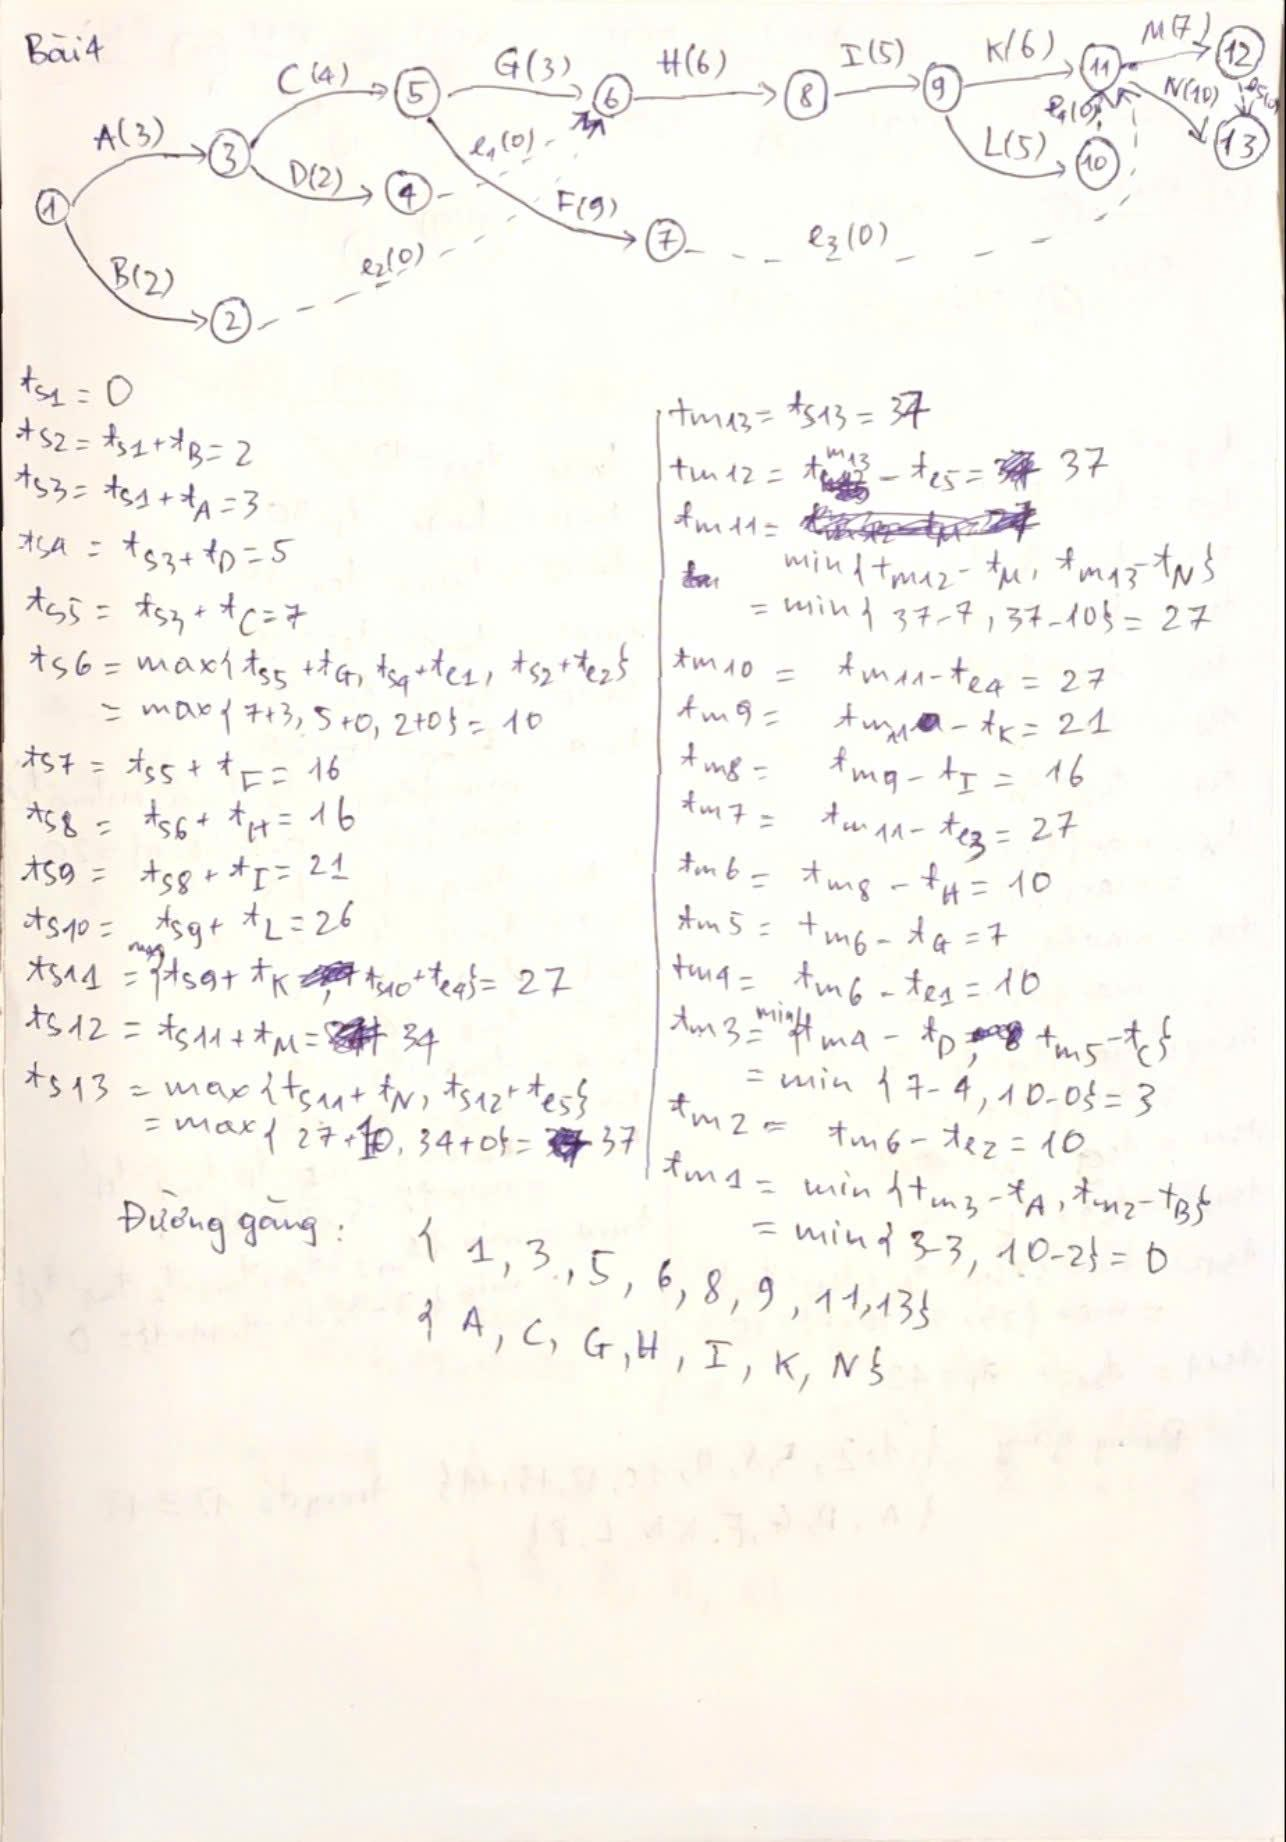 Bài 4
A(3)
B(2)
C(4)
D(2)
G(3)
F(9)
H(6)
I(5)
K(6)
L(5)
M(7)
N(10)
e1(0)
e2(0)
e3(0)
e4(0)
e5(0)
1
2
3
4
5
6
7
8
9
10
11
12
13
ts1 = 0
ts2 = ts1 + tB = 2
ts3 = ts1 + tA = 3
ts4 = ts3 + tD = 5
ts5 = ts3 + tC = 7
ts6 = max{ts5 + tG, ts4 + te1, ts2 + te2}
= max{7+3, 5+0, 2+0} = 10
ts7 = ts5 + tF = 16
ts8 = ts6 + tH = 16
ts9 = ts8 + tI = 21
ts10 = ts9 + tL = 26
ts11 = max{ts9 + tK, ts10 + te4} = 27
ts12 = ts11 + tM = 34
ts13 = max{ts11 + tN, ts12 + te5}
= max{27+10, 34+0} = 37
tm13 = ts13 = 37
tm12 = tm13 - te5 = 37
tm11 =
min{tm12 - tM, tm13 - tN}
= min{37-7, 37-10} = 27
tm10 = tm11 - te4 = 27
tm9 = tm11 - tK = 21
tm8 = tm9 - tI = 16
tm7 = tm11 - te3 = 27
tm6 = tm8 - tH = 10
tm5 = tm6 - tG = 7
tm4 = tm6 - te1 = 10
tm3 = min{tm4 - tD, tm5 - tC}
= min {7-4, 10-0} = 3
tm2 = tm6 - te2 = 10
tm1 = min{tm3 - tA, tm2 - tB}
= min{3-3, 10-2} = 0
Đường găng:
{1, 3, 5, 6, 8, 9, 11, 13}
{A, C, G, H, I, K, N}